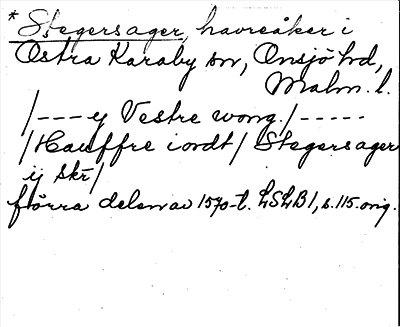 * Stegersager, havreåker i
Östra Karaby sn, Onsjö hd,
Malm. l.
/---ey Vestre wong./-----
/Hauffre iordt/ Stegersager
ij skr/
förra delen av 1570-t. LSLB1, s.115.orig.